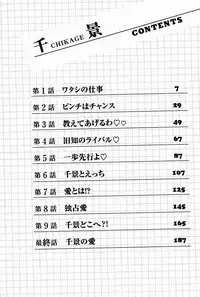 千景
CHIKAGE
CONTENTS
第1話 ワタシの仕事 7
第2話 ピンチはチャンス 29
第3話 教えてあげるわ♡♡ 49
第4話 旧知のライバル♡ 67
第5話 一歩先行よ♡ 87
第6話 千景とえっち 107
第7話 愛とは!? 125
第8話 独占愛 145
第9話 千景どこへ?! 165
最終話 千景の愛 187